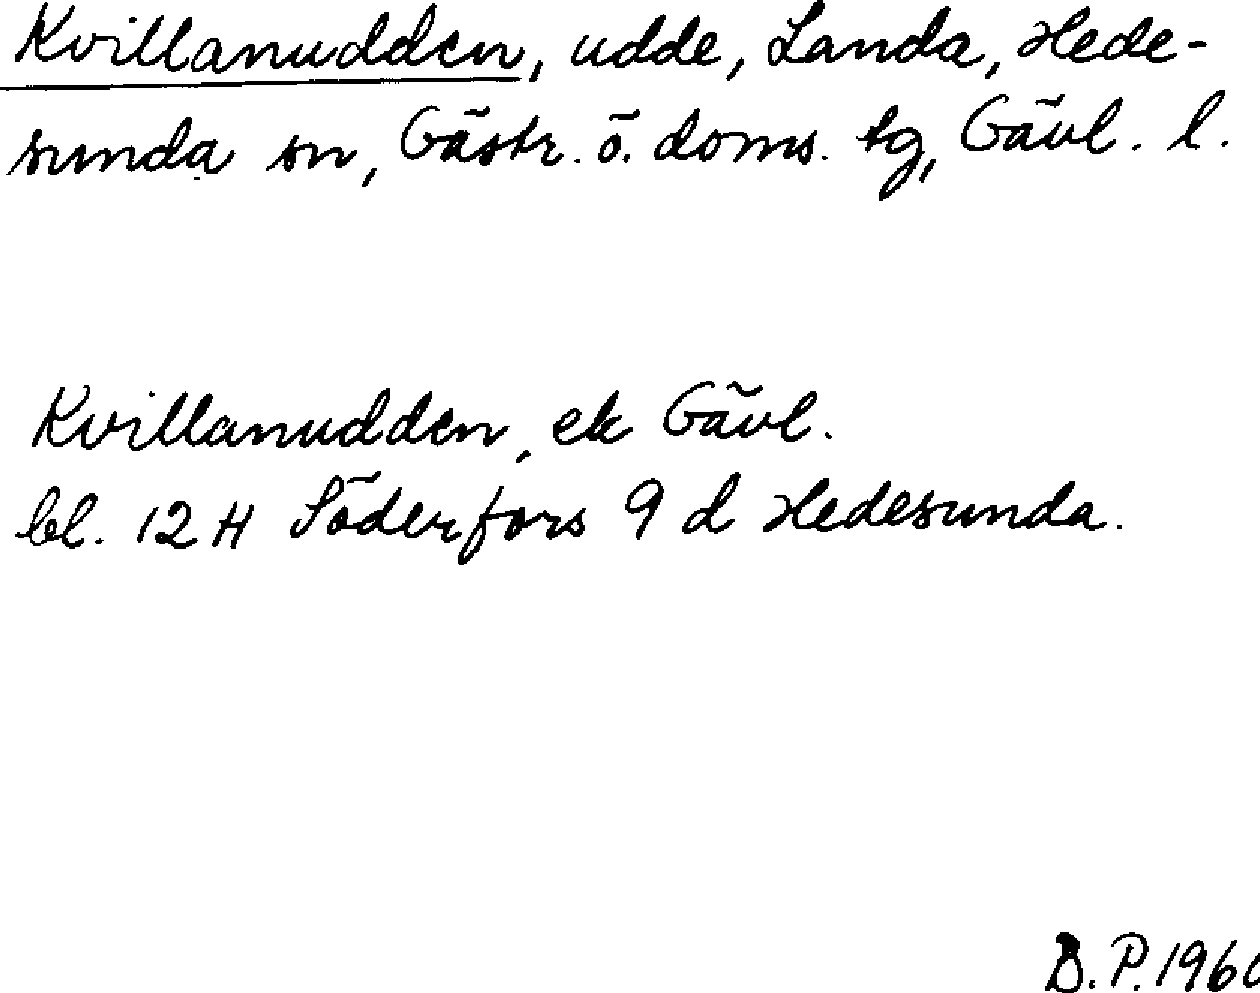 Kvillanudden, udde, Landa, Hede-
sunda sn, Gästr. ö. doms. tg, Gävl. l.
Kvillanudden, ek Gävl.
bl. 12 H Söderfors 9 d Hedesunda.
D. P. 196